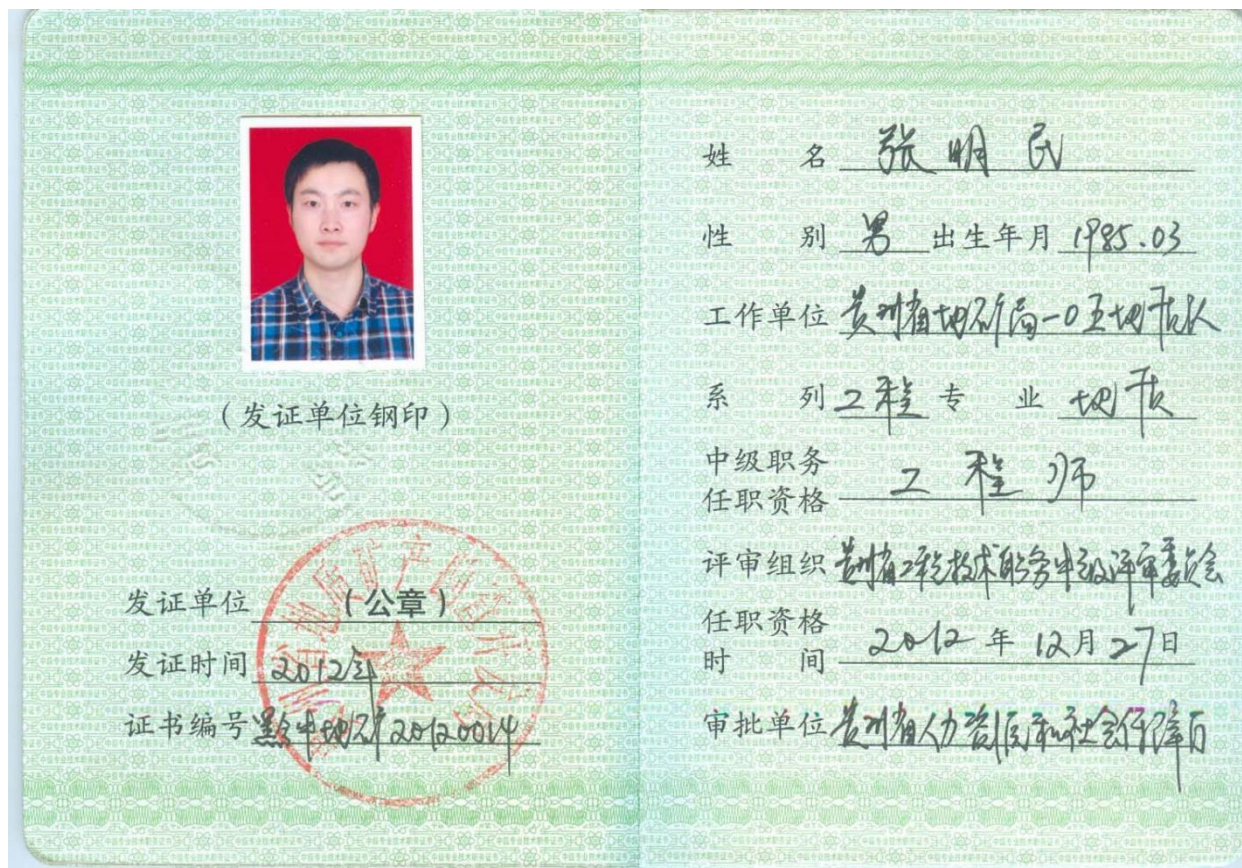 （发证单位钢印）
发证单位（公章）
发证时间 2012年
证书编号 黔中地矿20120014
贵州省地质矿产勘查开发局
姓名 张明民
性别 男 出生年月 1985.03
工作单位 贵州省地矿局一0五地质队
系列 工程 专业 地质
中级职务
任职资格 工程师
评审组织 贵州省工程技术职务中级评审委员会
任职资格
时间 2012年12月27日
审批单位 贵州省人力资源和社会保障厅